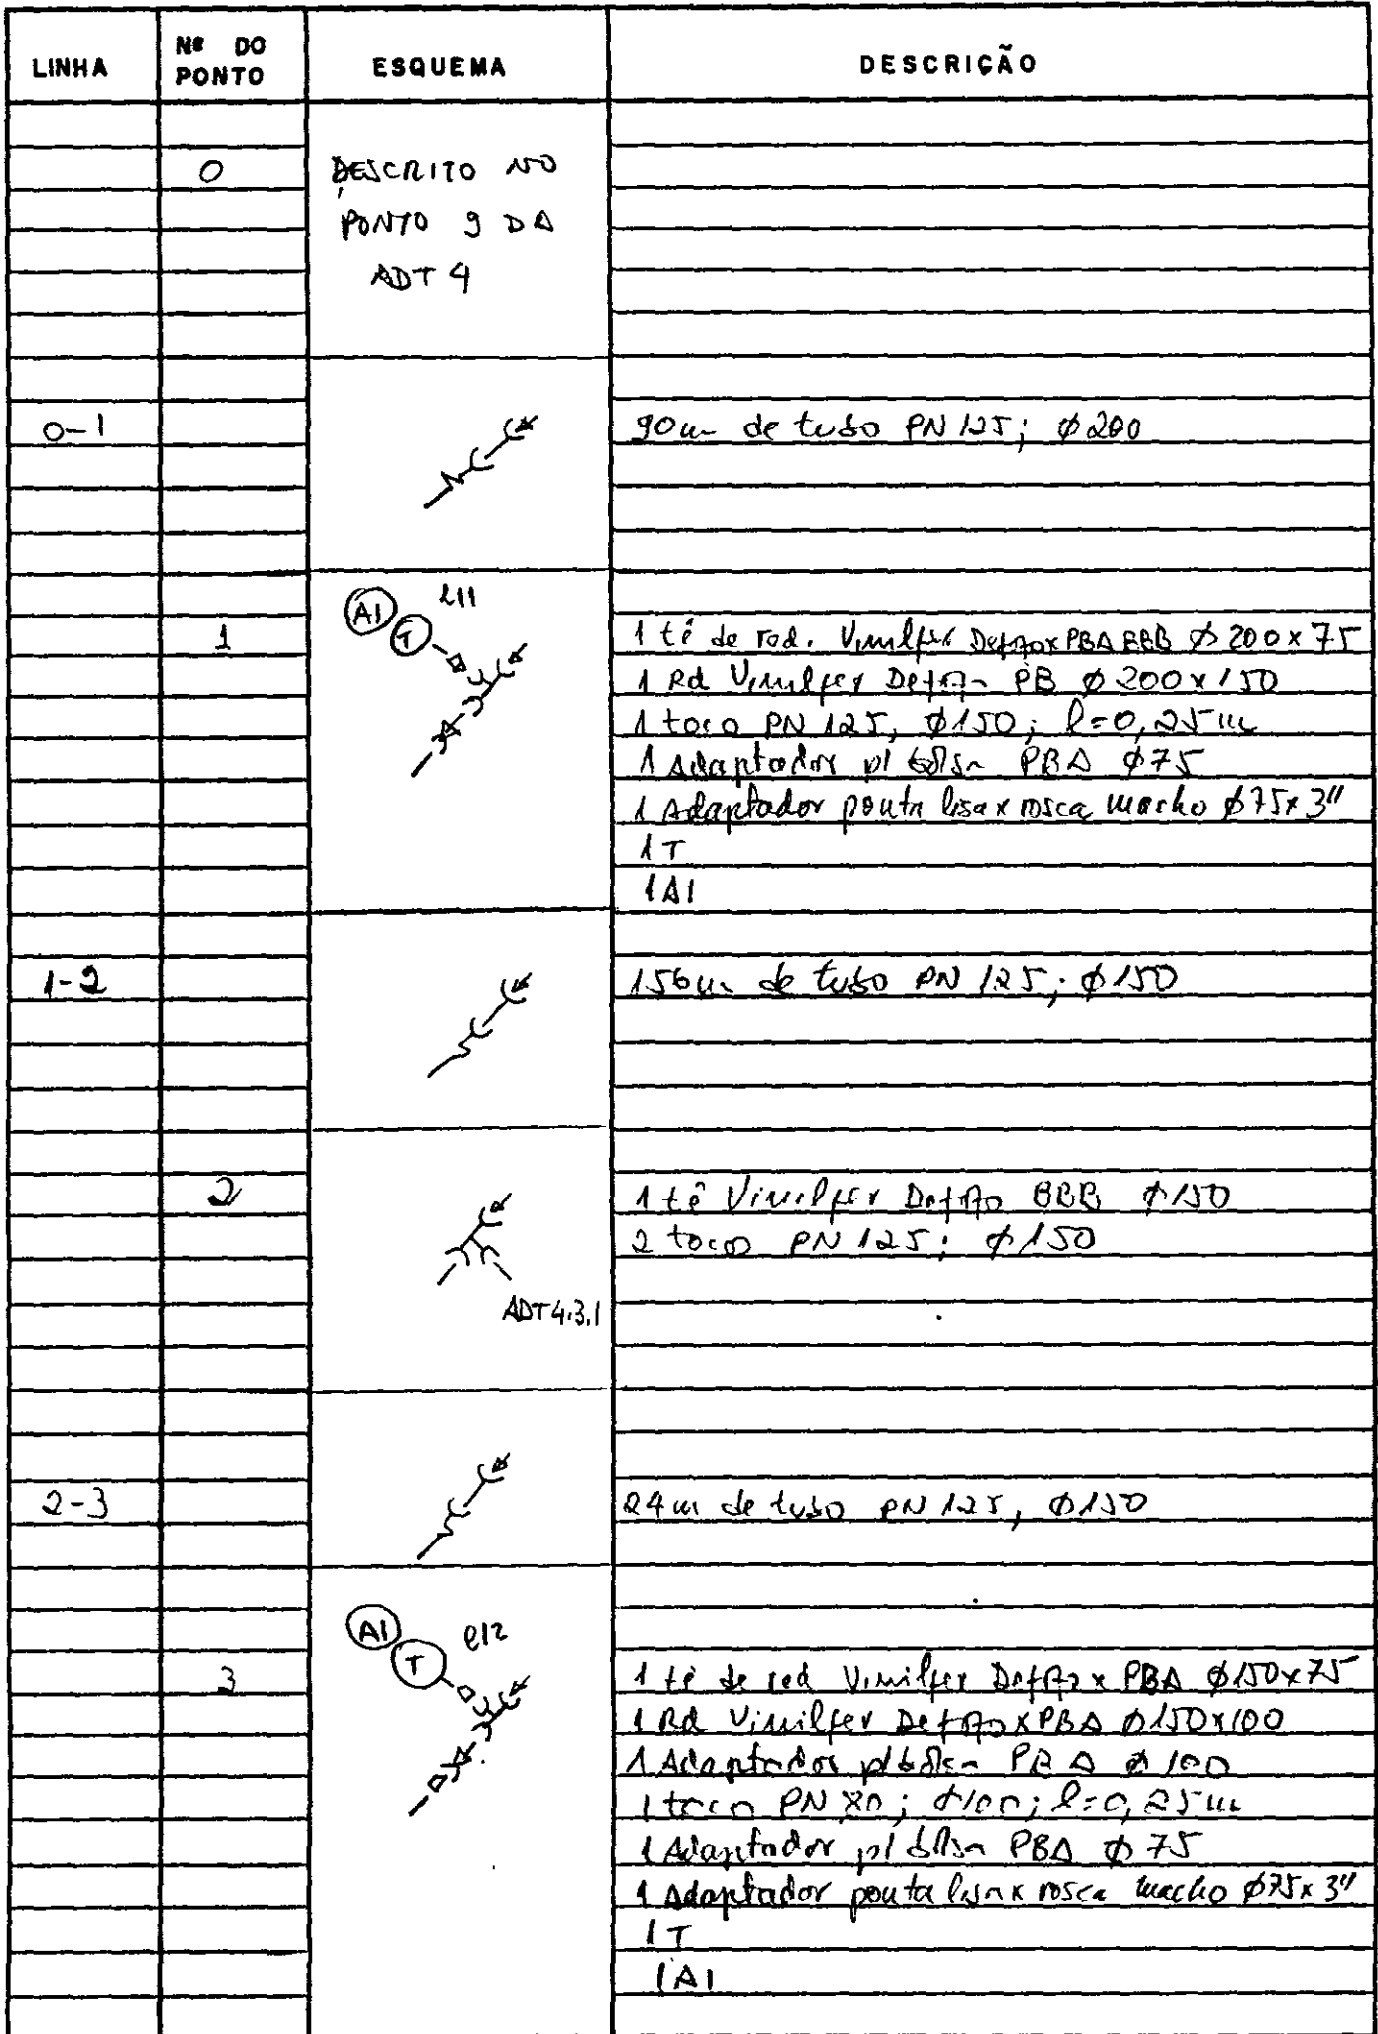 LINHA
Nº DO PONTO
ESQUEMA
DESCRIÇÃO
0
DESCRITO NO
PONTO 9 DA
ADT 4
0-1
90m de tubo PN 125; φ 200
AI T l11
1
1 tê de red. Vinilfer DefoFo x PBA BBB φ 200 x 75
1 Rd Vinilfer DefoFo PB φ 200 x 150
1 toco PN 125, φ150; l=0,25m
1 Adaptador p/ bolsa PBA φ75
1 Adaptador ponta lisa x rosca macho φ75x3"
1T
1AI
1-2
156m de tubo PN 125; φ150
2
1 tê Vinilfer DefoFo BBB φ150
2 tocos PN 125; φ150
ADT 4.3.1
2-3
24m de tubo PN 125, φ150
AI T l12
3
1 tê de red Vinilfer DefoFo x PBA φ150x75
1 Rd Vinilfer DefoFo x PBA φ150x100
1 Adaptador p/ bolsa PBA φ 100
1 toco PN 80; φ100; l=0,25m
1 Adaptador p/ bolsa PBA φ 75
1 Adaptador ponta lisa x rosca macho φ75x3"
1T
1AI